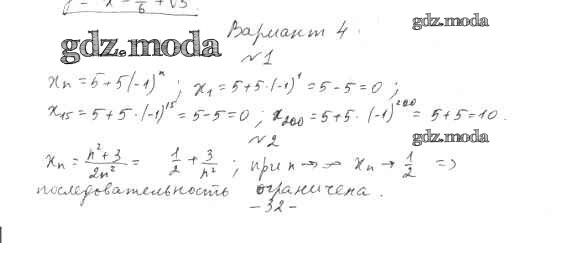 y = x - π/6 + √3.
gdz.moda
Вариант 4.
gdz.moda
№1
xₙ = 5+5(-1)ⁿ; x₁ = 5+5·(-1)¹ = 5-5 = 0;
x₁₅ = 5+5·(-1)¹⁵ = 5-5 = 0; x₂₀₀ = 5+5·(-1)²⁰⁰ = 5+5 = 10.
№2
gdz.moda
xₙ = (n²+3)/(2n²) = 1/2 + 3/n²; при n→∞ xₙ → 1/2 =>
последовательность ограничена.
-32-